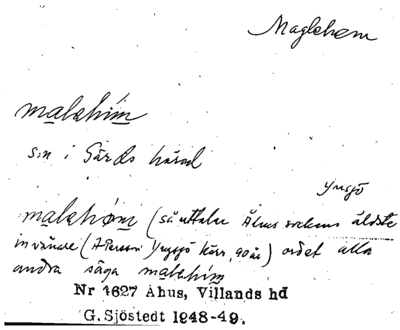 Maglehem
malahim
sn i Gärds härad
Yngsjö
malahöm (så uttalar Åhus sockens äldste
invånare (A Persson Yngsjö kärr, 90 år) ordet alla
andra säga malahim
Nr 4627 Åhus, Villands hd
G. Sjöstedt 1948-49.